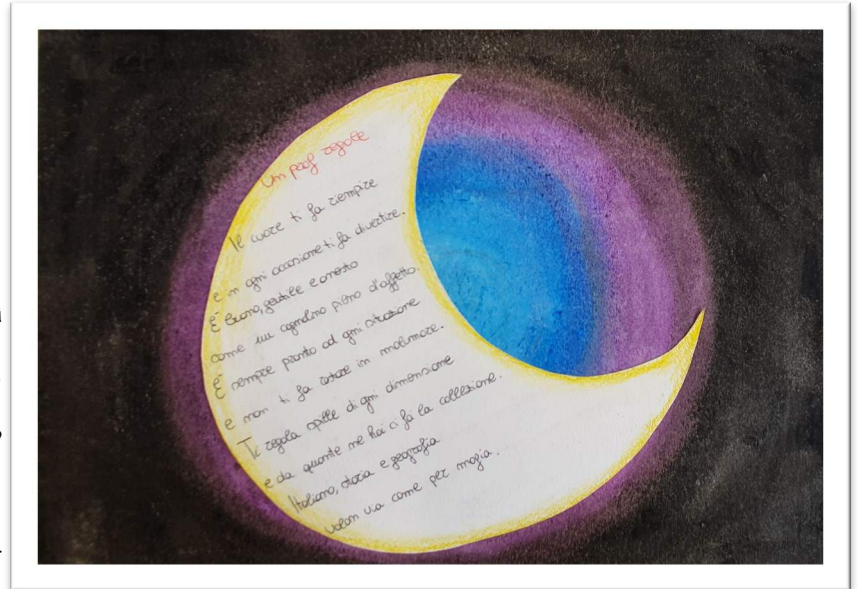 Un prof regole
Il cuore ti fa riempire
e in ogni occasione ti fa divertire.
È buono, gentile e onesto
come un agnellino pieno d'affetto.
È sempre pronto ad ogni situazione
e non ti fa restare in malumore.
Ti regala spille di ogni dimensione
e da quante ne hai ci fa la collezione.
Italiano, storia e geografia
volan via come per magia.